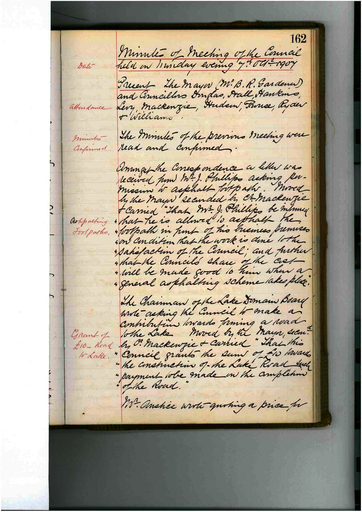 162
Minutes of Meeting of the Council
held on Monday evening 7th Octr. 1907
Date
Present The Mayor (Mr. B. R. Gardener)
and Councillors Hall, Hawkins,
Attendance
Levy, Mackenzie, Hudson, Ryder
& Williams.
Minutes
Confirmed
The Minutes of the previous Meeting were
read and confirmed.
Amongst the Correspondence a letter was
received from Mr. J. Phillips asking per-
mission to asphalt footpath. Moved
by the Mayor seconded by Cr. Mackenzie
& Carried "That Mr. J. Phillips be informed
Asphalting
Footpaths.
"that he is allowed to asphalt the
"footpath in front of his business premises
"on Condition that the work is done to the
"satisfaction of the Council; and further
"that the Council's share of the cost
"will be made good to him when a
"general asphalting scheme takes place."
The Chairman of the Lake Domain Board
wrote asking the Council to make a
Contribution towards forming a road
Grant of
£10 - Road
to Lake.
to the Lake. Moved by the Mayor, secd.
by Cr. Mackenzie & Carried "That this
"Council grants the sum of £10 towards
"the construction of the Lake Road
"payment to be made on the completion
"of the Road."
Mr. Anstice wrote quoting a price for